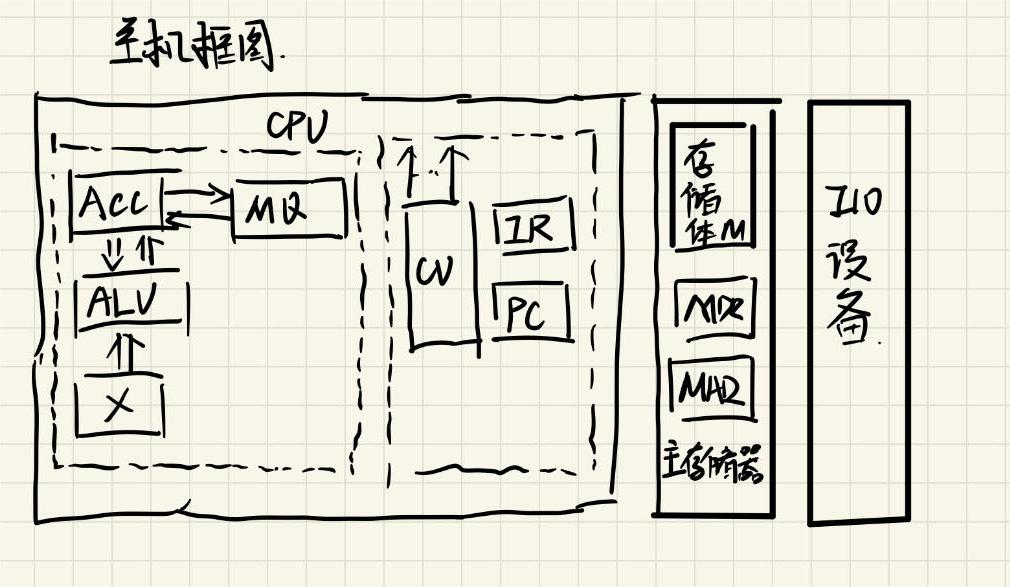 主机框图.
CPU
ACC
MQ
ALU
X
CU
IR
PC
存
储
体M
MDR
MAR
主存储器
I/O
设
备.